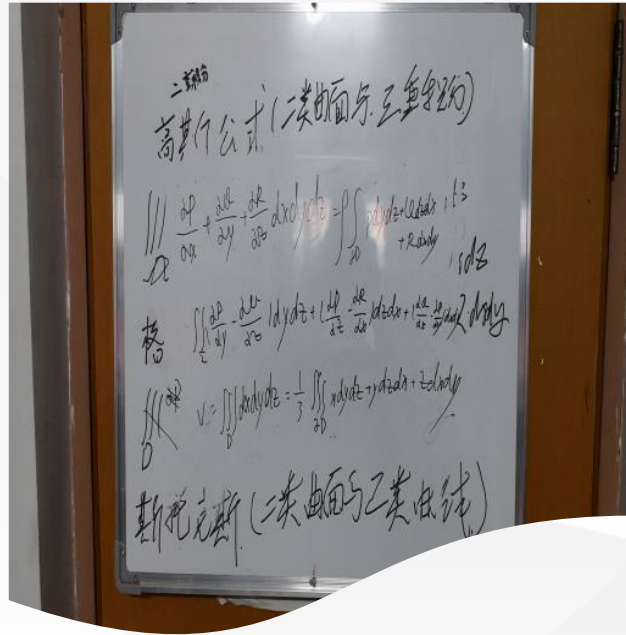 二类积分
高斯公式(二类曲面与三重积分)
∭Ω ∂P/∂x + ∂Q/∂y + ∂R/∂z dxdydz = ∬∂D dydz + Qdzdx + Rdxdy
∬Σ ∂P/∂y - ∂Q/∂z dydz + (∂P/∂z - ∂R/∂x) dzdx + (∂Q/∂x - ∂P/∂y) dxdy
∭D V = ∭D dxdydz = 1/3 ∭∂D xdydz + ydzdx + zdxdy
斯托克斯(二类曲面与二类曲线)